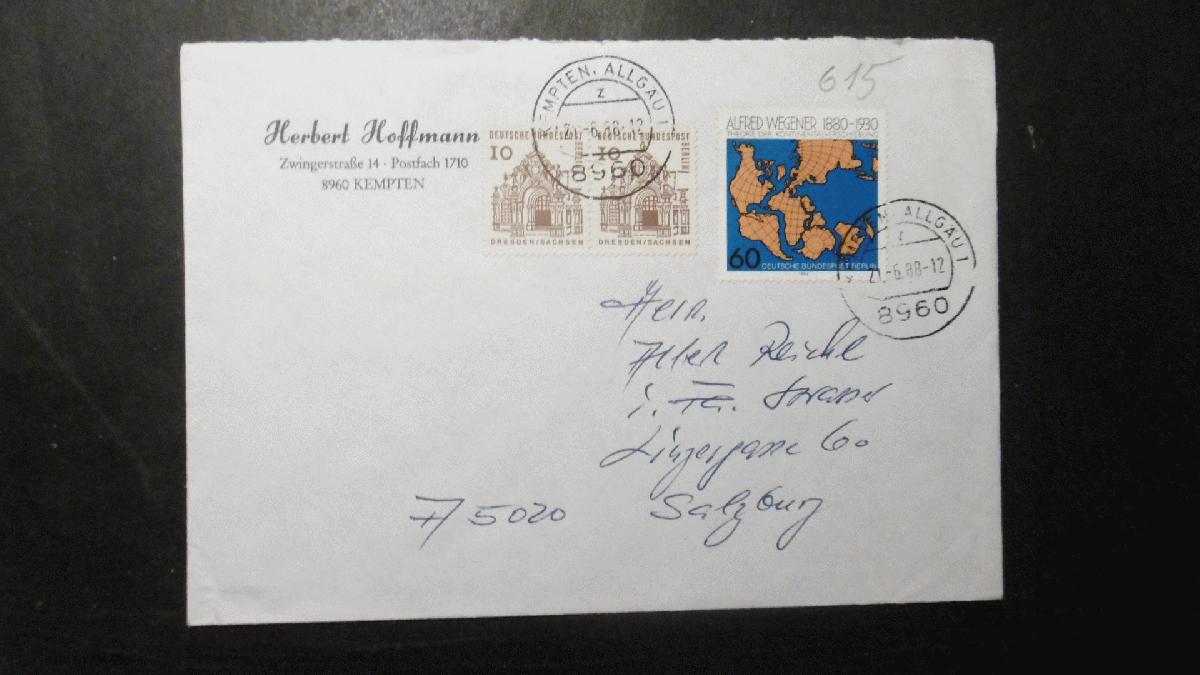 Herbert Hoffmann
Zwingerstraße 14 · Postfach 1710
8960 KEMPTEN
DEUTSCHE BUNDESPOST BERLIN
10
DRESDEN/SACHSEN
DEUTSCHE BUNDESPOST BERLIN
10
DRESDEN/SACHSEN
EMPTEN, ALLGAU 1
z
-6.88-12
8960
615
ALFRED WEGENER 1880-1930
THEORIE DER KONTINENTALVERSCHIEBUNG
60
DEUTSCHE BUNDESPOST BERLIN
TEN, ALLGAU 1
z
21.-6.88-12
8960
Herrn
Reichl
Strasser
Linzergasse 60
A 5020 Salzburg